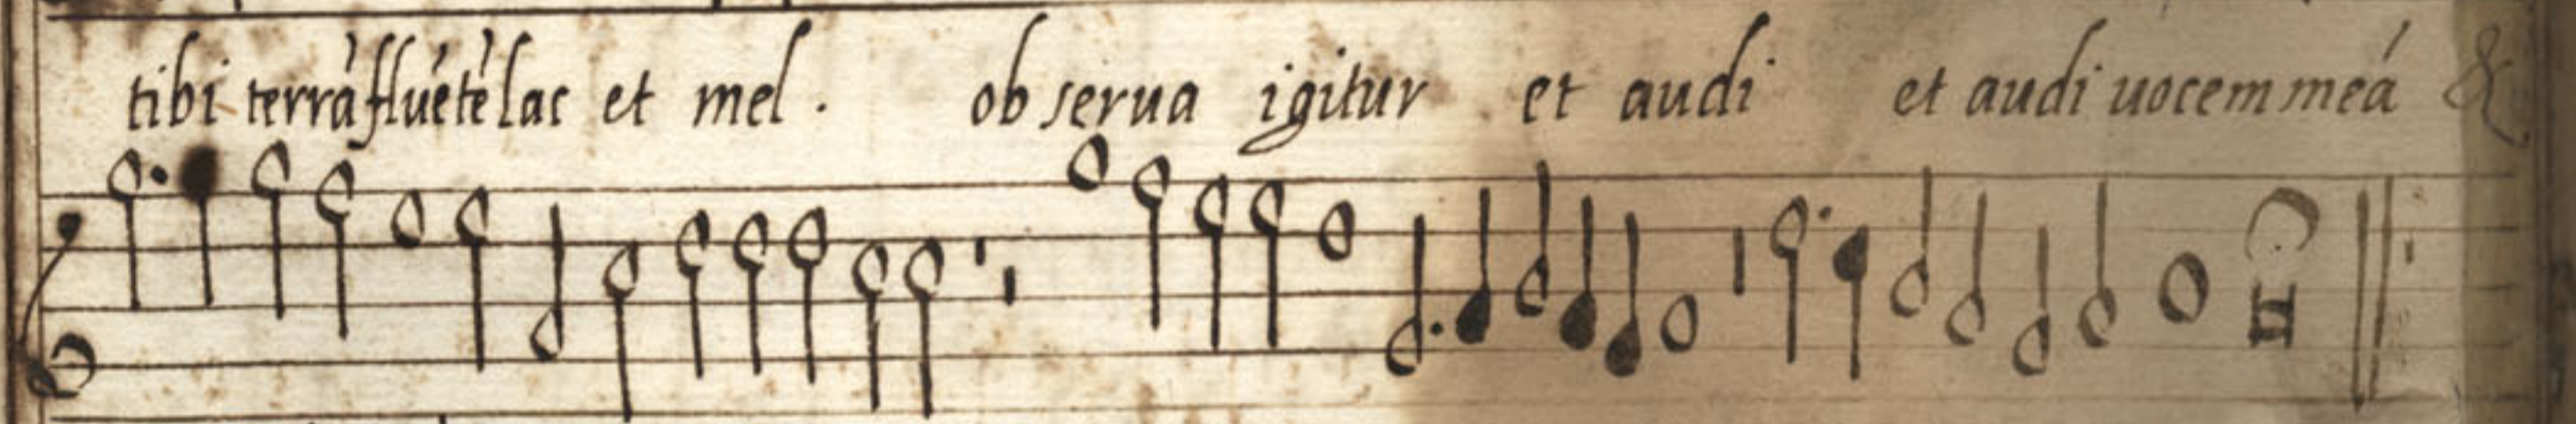 tibi terrã fluẽtẽ lac et mel. observa igitur et audi et audi uocem meã &